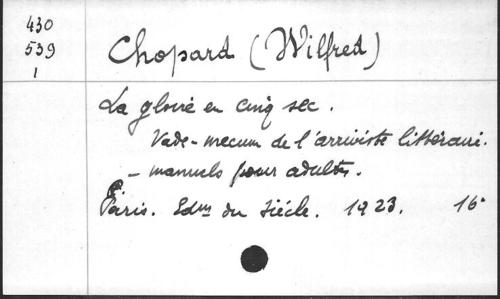 430
539
1
Chopard (Wilfred)
La gloire en cinq sec.
Vade-mecum de l'arriviste littéraire.
- manuels pour adultes.
Paris. Edns du Siècle. 1923. 16°